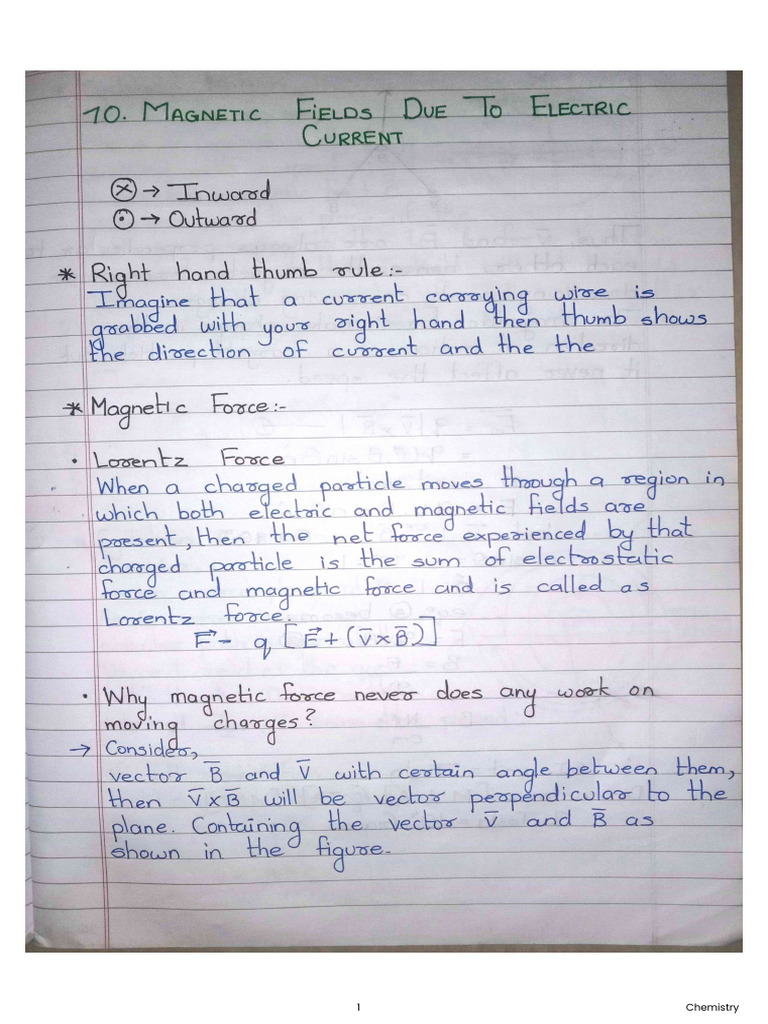 10. MAGNETIC FIELDS DUE TO ELECTRIC
CURRENT
ⓧ → Inward
⊙ → Outward
* Right hand thumb rule:-
Imagine that a current carrying wire is
grabbed with your right hand then thumb shows
the direction of current and the the
* Magnetic Force:-
• Lorentz Force
When a charged particle moves through a region in
which both electric and magnetic fields are
present, then the net force experienced by that
charged particle is the sum of electrostatic
force and magnetic force and is called as
Lorentz force.
F⃗ - q [E⃗ + (V̅ × B̅)]
• Why magnetic force never does any work on
moving charges?
→ Consider,
vector B̅ and V̅ with certain angle between them,
then V̅ × B̅ will be vector perpendicular to the
plane. Containing the vector V̅ and B̅ as
shown in the figure.
1 Chemistry